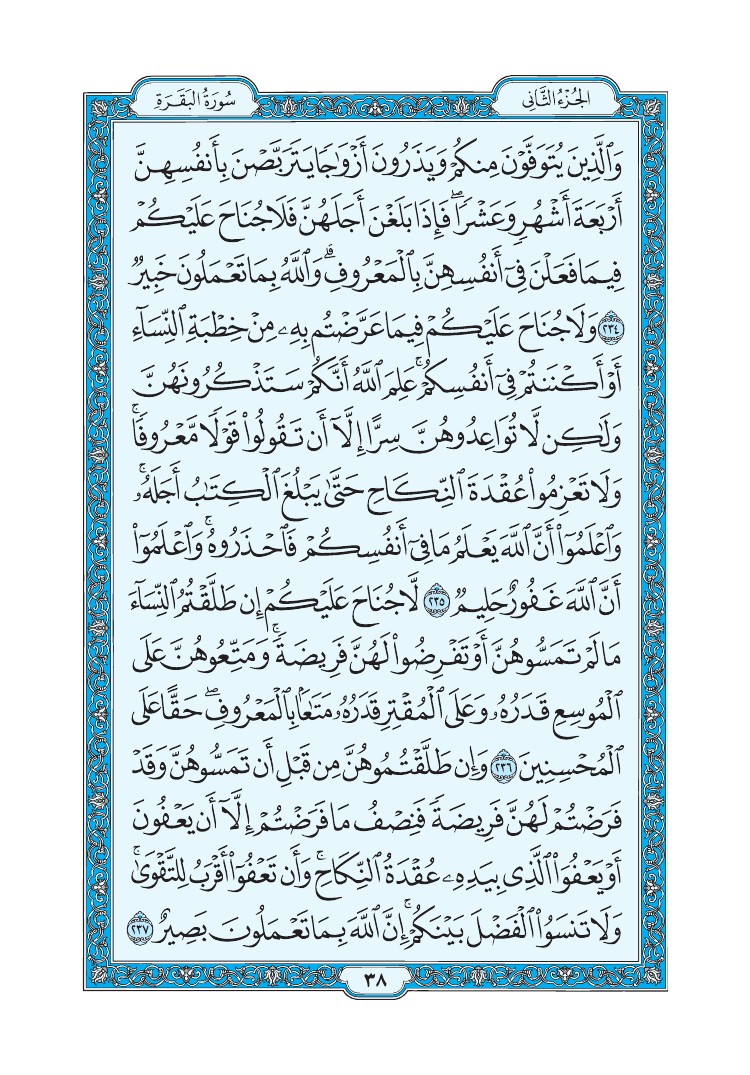 الجُزْءُ الثَّانِي
سُورَةُ البَقَرَةِ
وَٱلَّذِينَ يُتَوَفَّوۡنَ مِنكُمۡ وَيَذَرُونَ أَزۡوَٰجٗا يَتَرَبَّصۡنَ بِأَنفُسِهِنَّ
أَرۡبَعَةَ أَشۡهُرٖ وَعَشۡرٗاۖ فَإِذَا بَلَغۡنَ أَجَلَهُنَّ فَلَا جُنَاحَ عَلَيۡكُمۡ
فِيمَا فَعَلۡنَ فِيٓ أَنفُسِهِنَّ بِٱلۡمَعۡرُوفِۗ وَٱللَّهُ بِمَا تَعۡمَلُونَ خَبِيرٞ
٢٣٤ وَلَا جُنَاحَ عَلَيۡكُمۡ فِيمَا عَرَّضۡتُم بِهِۦ مِنۡ خِطۡبَةِ ٱلنِّسَآءِ
أَوۡ أَكۡنَنتُمۡ فِيٓ أَنفُسِكُمۡۚ عَلِمَ ٱللَّهُ أَنَّكُمۡ سَتَذۡكُرُونَهُنَّ
وَلَٰكِن لَّا تُوَاعِدُوهُنَّ سِرًّا إِلَّآ أَن تَقُولُواْ قَوۡلٗا مَّعۡرُوفٗاۚ
وَلَا تَعۡزِمُواْ عُقۡدَةَ ٱلنِّكَاحِ حَتَّىٰ يَبۡلُغَ ٱلۡكِتَٰبُ أَجَلَهُۥۚ
وَٱعۡلَمُوٓاْ أَنَّ ٱللَّهَ يَعۡلَمُ مَا فِيٓ أَنفُسِكُمۡ فَٱحۡذَرُوهُۚ وَٱعۡلَمُوٓاْ
أَنَّ ٱللَّهَ غَفُورٌ حَلِيمٞ ٢٣٥ لَّا جُنَاحَ عَلَيۡكُمۡ إِن طَلَّقۡتُمُ ٱلنِّسَآءَ
مَا لَمۡ تَمَسُّوهُنَّ أَوۡ تَفۡرِضُواْ لَهُنَّ فَرِيضَةٗۚ وَمَتِّعُوهُنَّ عَلَى
ٱلۡمُوسِعِ قَدَرُهُۥ وَعَلَى ٱلۡمُقۡتِرِ قَدَرُهُۥ مَتَٰعَۢا بِٱلۡمَعۡرُوفِۖ حَقًّا عَلَى
ٱلۡمُحۡسِنِينَ ٢٣٦ وَإِن طَلَّقۡتُمُوهُنَّ مِن قَبۡلِ أَن تَمَسُّوهُنَّ وَقَدۡ
فَرَضۡتُمۡ لَهُنَّ فَرِيضَةٗ فَنِصۡفُ مَا فَرَضۡتُمۡ إِلَّآ أَن يَعۡفُونَ
أَوۡ يَعۡفُوَاْ ٱلَّذِي بِيَدِهِۦ عُقۡدَةُ ٱلنِّكَاحِۚ وَأَن تَعۡفُوٓاْ أَقۡرَبُ لِلتَّقۡوَىٰۚ
وَلَا تَنسَوُاْ ٱلۡفَضۡلَ بَيۡنَكُمۡۚ إِنَّ ٱللَّهَ بِمَا تَعۡمَلُونَ بَصِيرٌ ٢٣٧
٣٨